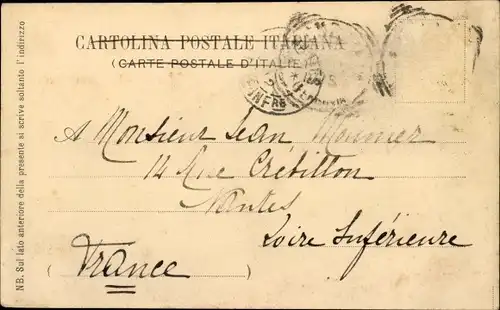 CARTOLINA POSTALE ITALIANA
(CARTE POSTALE D'ITALIE)
NB. Sul lato anteriore della presente si scrive soltanto l'indirizzo
A Monsieur Jean Monnier
14 Rue Crébillon
Nantes
Loire Inférieure
(France)